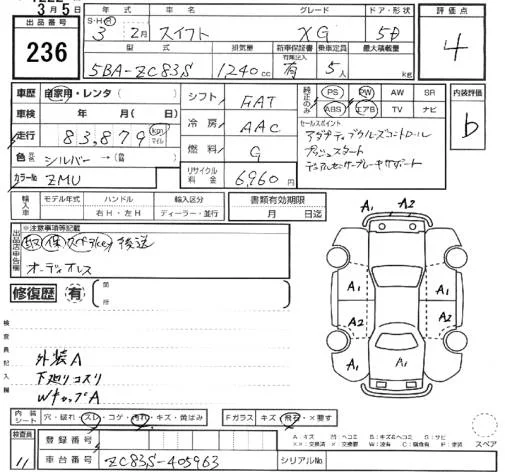 3月5日
出品番号 年式 車名 グレード ドア・形状 評価点
236
S・H・R 3 2月 スイフト XG 5D 4
型式 排気量 新車保証書 有(記入) 乗車定員 最大積載量
5BA-ZC83S 1240cc 有 5人 kg
車歴 自家用・レンタ( ) シフト FAT 純正のみ PS PW AW SR 内装評価
車検 年 月( 日) ABS エアB TV ナビ b
走行 83,879 km マイル 冷房 AAC セールスポイント
アダプティブクルーズコントロール
色 シルバー→( ) 燃料 G プッシュスタート
デュアルセンサーブレーキサポート
カラーNo ZMU リサイクル料金 6,960円
輸入車 モデル年式 ハンドル 輸入区分 書類有効期限
右H・左H ディーラー・並行 月 日迄
出品店申告欄 ※注意事項等記載
後送
オーディオレス
修復歴 有 箇所
検査員記入欄
外装A
下廻りコスリ
WキャップA
A1 A2
A1 A1
A2 A2
A1
内装シート 穴・破れ・スレ・コゲ・汚れ・キズ・黄ばみ Fガラス キズ・飛石・×要す
検査員 登録番号
11 車台番号 ZC83S-405963 シリアルNo
A:キズ U:ヘコミ B:キズ&ヘコミ S:サビ
XX:交換済 X:要交換 W:波有 C:腐食有 P:塗装
スペア